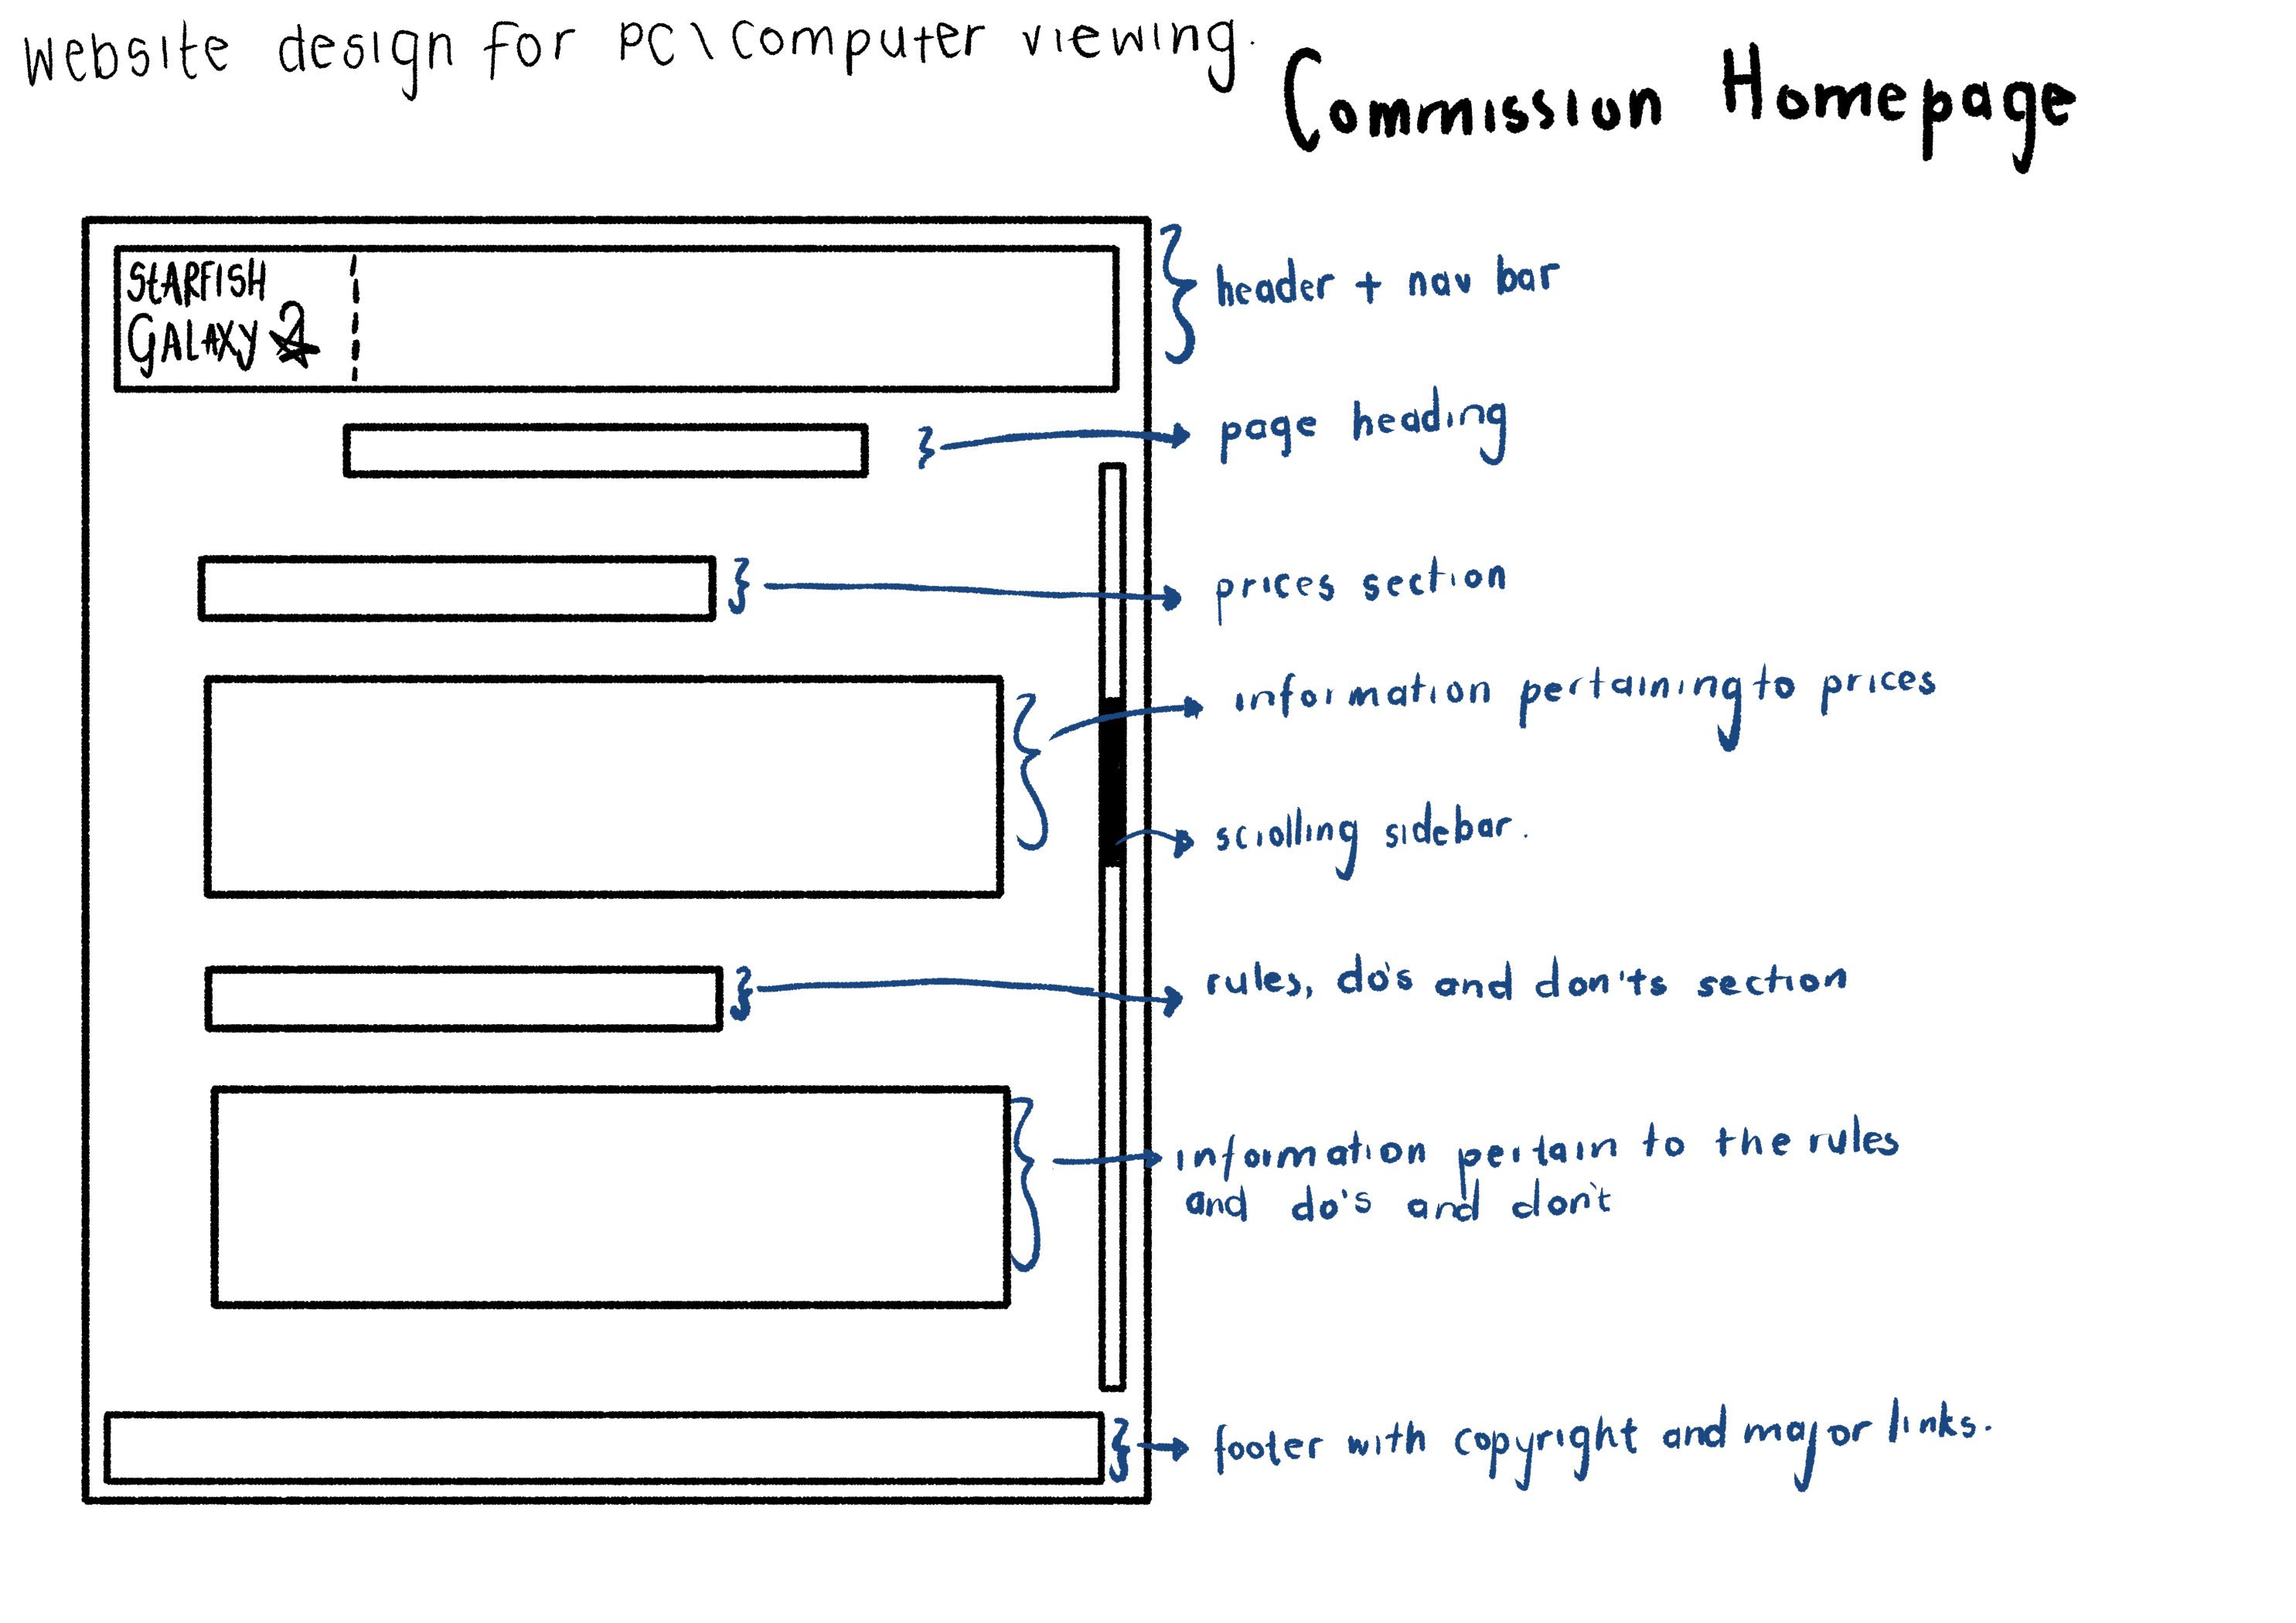 Website design for PC\Computer viewing.
Commission Homepage
STARFISH
GALAXY
header + nav bar
page heading
prices section
information pertaining to prices
scrolling sidebar.
rules, do's and don'ts section
information pertain to the rules
and do's and don't
footer with copyright and major links.